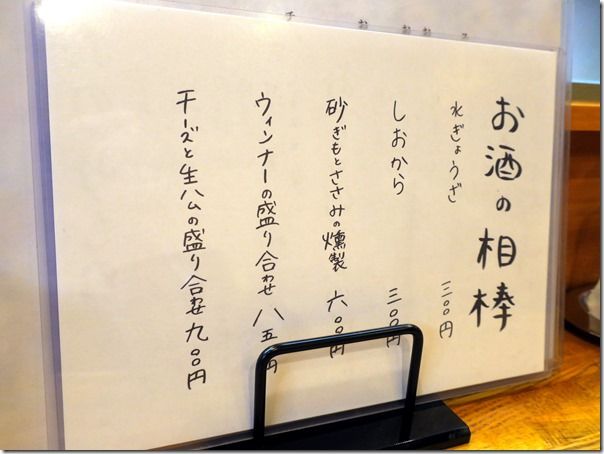 お酒の相棒
水ぎょうざ 三〇〇円
しおから 三〇〇円
砂ぎもとささみの燻製 六〇〇円
ウィンナーの盛り合わせ 八五円
チーズと生ハムの盛り合わせ 九〇〇円